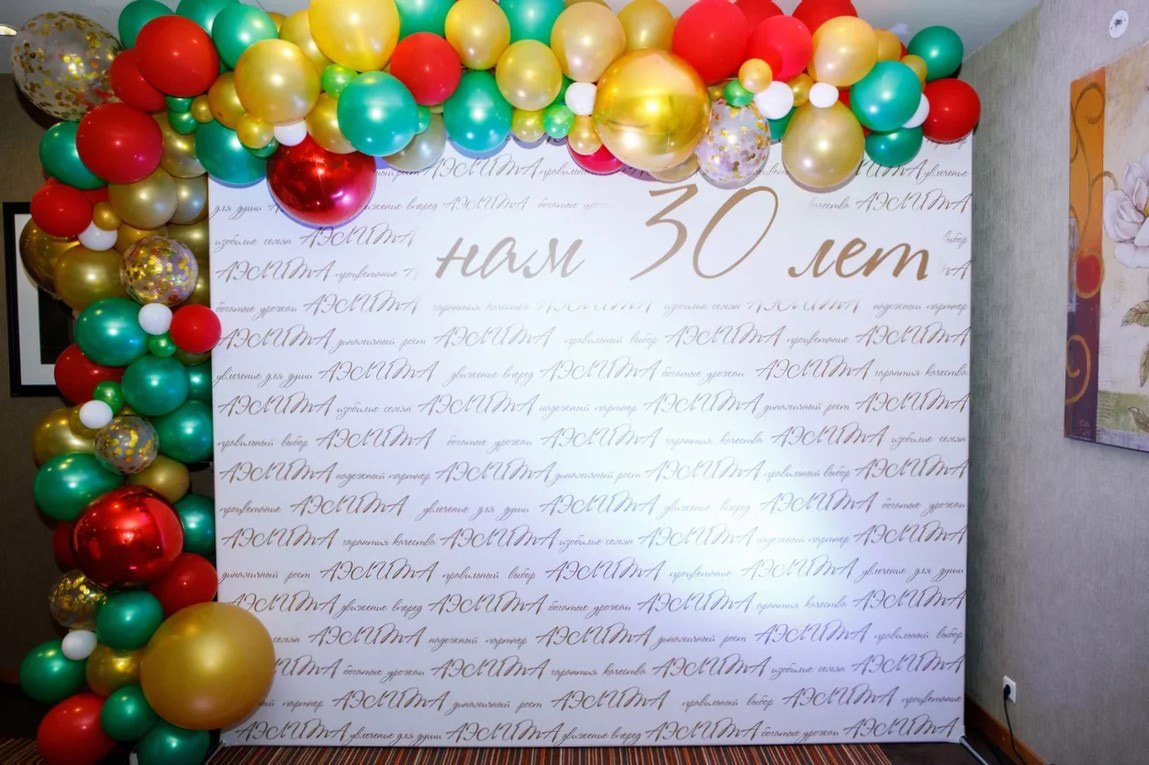 рост АЭЛИТА правильный АЭЛИТА увлечение
для души движение вперед АЭЛИТА богатые качества АЭЛИТА
изобилие семян АЭЛИТА выбор
нам 30 лет
АЭЛИТА процветание
богатые урожаи АЭЛИТА гарантия качества АЭЛИТА изобилие семян АЭЛИТА надежный партнер
АЭЛИТА динамичный рост АЭЛИТА правильный выбор АЭЛИТА процветание АЭЛИТА
увлечение для души АЭЛИТА движение вперед АЭЛИТА богатые урожаи АЭЛИТА гарантия качества
АЭЛИТА изобилие семян АЭЛИТА надежный партнер АЭЛИТА динамичный рост АЭЛИТА
правильный выбор АЭЛИТА богатые урожаи АЭЛИТА гарантия качества АЭЛИТА изобилие семян
АЭЛИТА надежный партнер АЭЛИТА динамичный рост АЭЛИТА правильный выбор АЭЛИТА
процветание АЭЛИТА увлечение для души АЭЛИТА движение вперед АЭЛИТА богатые урожаи
АЭЛИТА гарантия качества АЭЛИТА изобилие семян АЭЛИТА надежный партнер АЭЛИТА
динамичный рост АЭЛИТА правильный выбор АЭЛИТА процветание АЭЛИТА увлечение для души
АЭЛИТА движение вперед АЭЛИТА богатые урожаи АЭЛИТА гарантия качества АЭЛИТА
семян АЭЛИТА надежный партнер АЭЛИТА динамичный рост АЭЛИТА правильный выбор
АЭЛИТА богатые урожаи АЭЛИТА гарантия качества АЭЛИТА изобилие семян АЭЛИТА
партнер АЭЛИТА динамичный рост АЭЛИТА правильный выбор АЭЛИТА процветание
АЭЛИТА увлечение для души АЭЛИТА движение вперед АЭЛИТА богатые урожаи АЭЛИТА